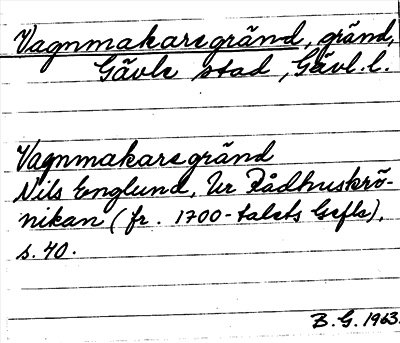 Vagnmakaregränd, gränd,
Gävle stad, Gävl. l.
Vagnmakaregränd
Nils Englund, Ur Rådhuskrö-
nikan (fr. 1700-talets Gefle),
s. 40.
B. G. 1963.